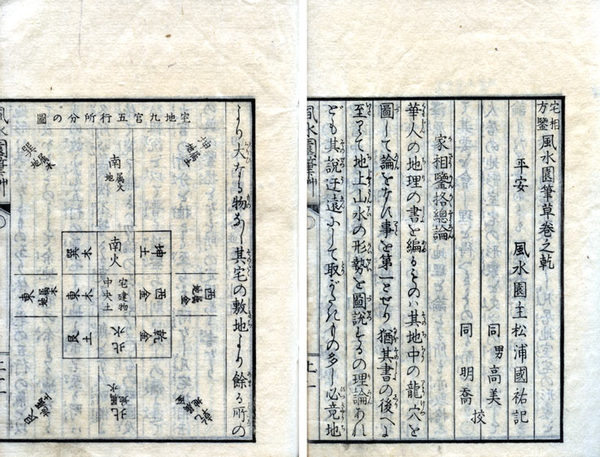 宅相
方鑒 風水園筆草巻之乾
平安 風水園主松浦國祐記
同 男高美
同 明喬 校
家相鑒格總論
華人の地理の書を編るものハ其地中の龍穴を
圖して論をなス事を第一とせり猶其書の後へに
至つて地上山水の形勢を圖説するの理論あれ
ども其説迂遠にして取がたきもの多し必竟地
より大なる物なし其宅の敷地より餘る所の
宅地九宮五行所分の圖
巽
地属木
南
地属火
坤
地属土
巽
木
南
火
坤
土
東
地属木
東
木
宅建物
中央土
西
金
西
地属金
艮
土
北
水
乾
金
艮
地属土
北
地属水
乾
地属金